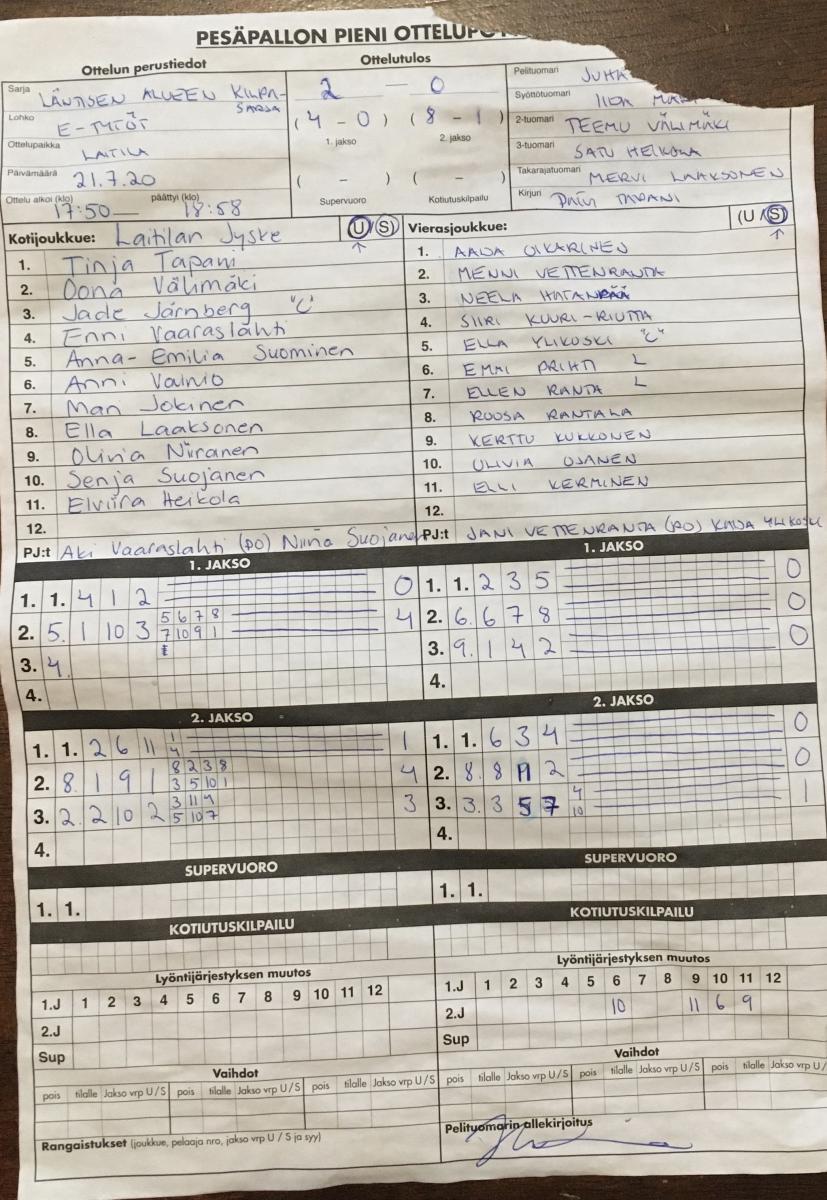 PESÄPALLON PIENI OTTELUPÖ
Ottelun perustiedot
Sarja LÄNTISEN ALUEEN KILPA-
SARJA
Lohko E-TYTÖT
Ottelupaikka LAITILA
Päivämäärä 21.7.20
Ottelu alkoi (klo) päättyi (klo)
17:50 — 18:58
Ottelutulos
2 — 0
(4 - 0) (8 - 1)
1. jakso 2. jakso
( - ) ( - )
Supervuoro Kotiutuskilpailu
Pelituomari JUHA
Syöttötuomari IIDA
2-tuomari TEEMU VÄLIMÄKI
3-tuomari SATU HEIKOLA
Takarajatuomari MERVI LAAKSONEN
Kirjuri PÄIVI TAPANI
Kotijoukkue: Laitilan Jyske (U/S)
1. Tinja Tapani
2. Oona Välimäki
3. Jade Järnberg "C"
4. Enni Vaaraslahti
5. Anna-Emilia Suominen
6. Anni Vainio
7. Mari Jokinen
8. Ella Laaksonen
9. Olivia Niiranen
10. Senja Suojanen
11. Elviira Heikola
12.
PJ:t Aki Vaaraslahti (PO) Niina Suojanen
Vierasjoukkue: (U/S)
1. AADA OIKARINEN
2. MENNI VETTENRANTA
3. NEELA HATANPÄÄ
4. SIIRI KUURI-RIUTTA
5. ELLA YLIKOSKI "C"
6. EMMI PRIHTI L
7. ELLEN RANTA L
8. ROOSA RANTALA
9. KERTTU KUKKONEN
10. OLIVIA OJANEN
11. ELLI KERMINEN
12.
PJ:t JANI VETTENRANTA (PO) KAIJA YLIKOSKI
1. JAKSO
1. 1. 4 1 2 0
2. 5. 1 10 3 5 6 7 8 4
7 10 9 1
3. 4.
4.
1. JAKSO
1. 1. 2 3 5 0
2. 6. 6 7 8 0
3. 9. 1 4 2 0
4.
2. JAKSO
1. 1. 2 6 11 1 1
4
2. 8. 1 9 1 8 2 3 8 4
3 5 10 1
3. 2. 2 10 2 3 11 9 3
5 10 7
4.
2. JAKSO
1. 1. 6 3 4 0
2. 8. 8 11 2 0
3. 3. 3 5 7 4 1
10
4.
SUPERVUORO
1. 1.
SUPERVUORO
1. 1.
KOTIUTUSKILPAILU
KOTIUTUSKILPAILU
Lyöntijärjestyksen muutos
1.J 1 2 3 4 5 6 7 8 9 10 11 12
2.J
Sup
Lyöntijärjestyksen muutos
1.J 1 2 3 4 5 6 7 8 9 10 11 12
2.J 10 11 6 9
Sup
Vaihdot
pois tilalle Jakso vrp U/S pois tilalle Jakso vrp U/S pois tilalle Jakso vrp U/S
Vaihdot
pois tilalle Jakso vrp U/S pois tilalle Jakso vrp U/S pois tilalle Jakso vrp U/S
Rangaistukset (joukkue, pelaaja nro, jakso vrp U / S ja syy)
Pelituomarin allekirjoitus